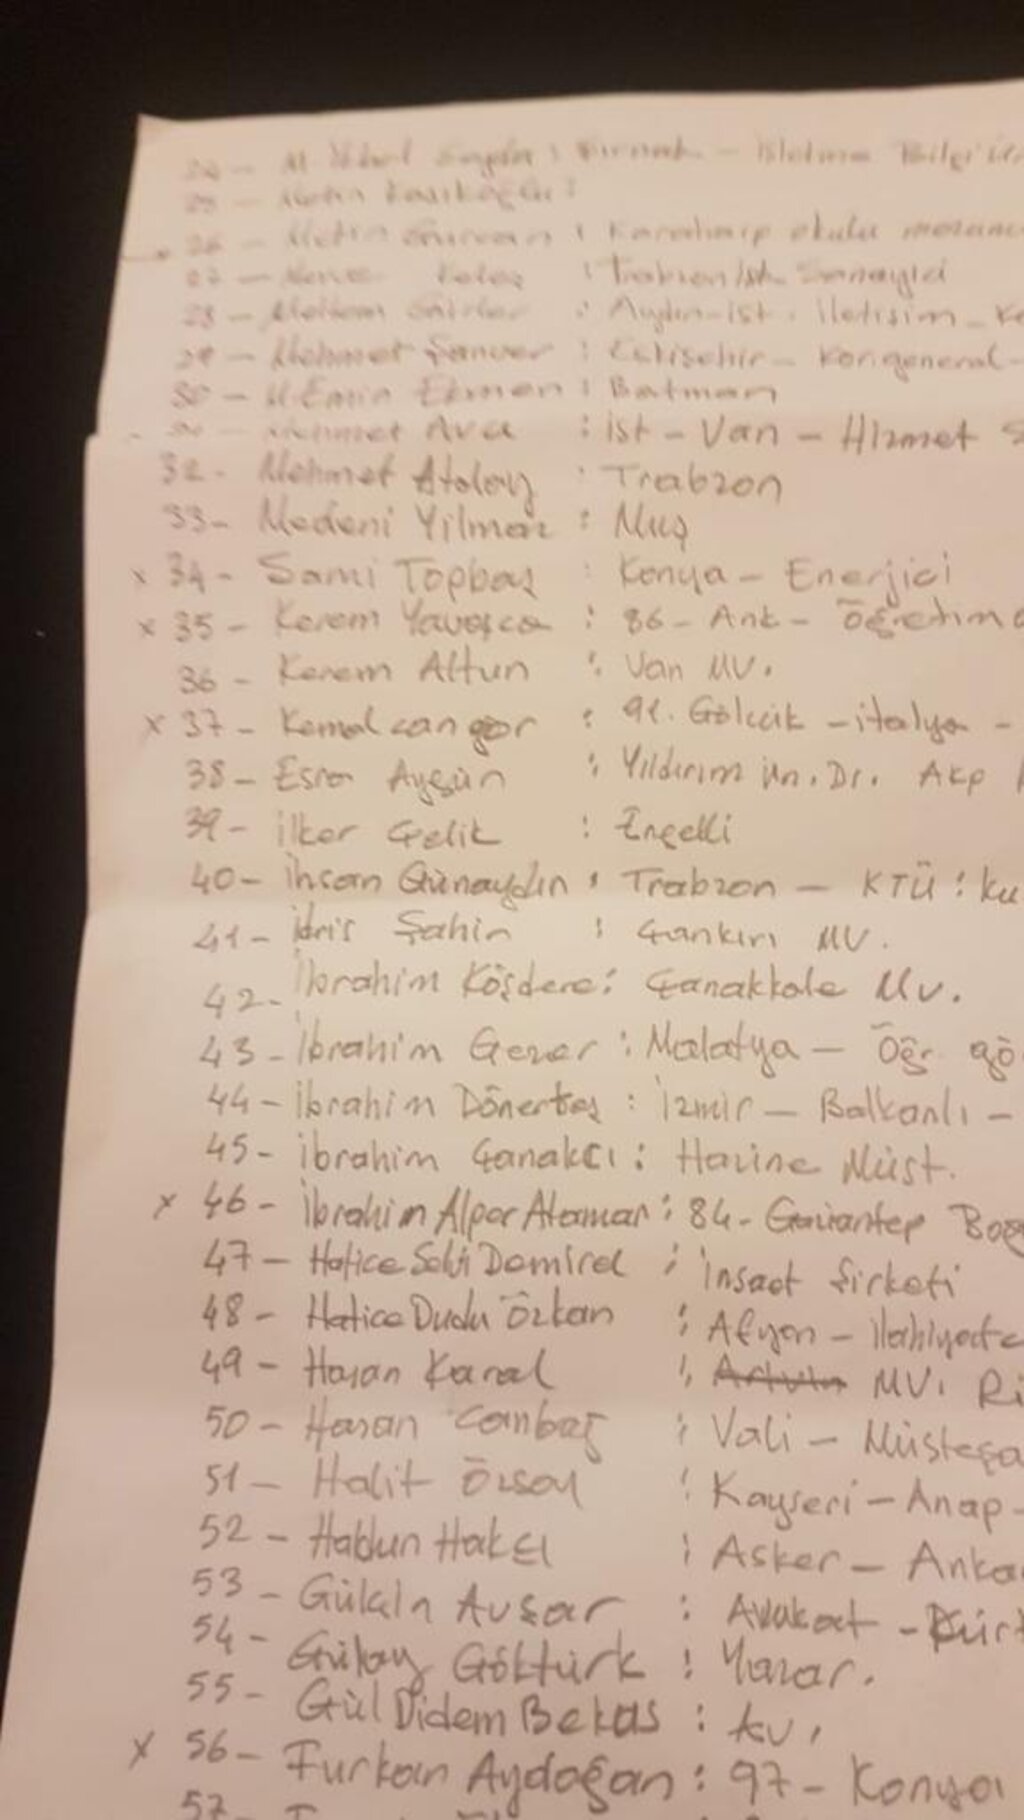 24 - M : Şırnak - İşletme Bilgi
25 - Metin Kaşıkoğlu :
26 - Metin Gürcan : Karaharp okulu mezunu
27 - : Trabzon İst. Sanayici
28 - Meltem : Aydın-ist. iletişim -
29 - Mehmet Şanver : Eskişehir - Korgeneral -
30 - M. Emin Ekmen : Batman
Mehmet Avcı : ist - Van - Hizmet
32 - Mehmet Atalay : Trabzon
33 - Medeni Yılmaz : Muş
x 34 - Sami Topbaş : Konya - Enerjici
x 35 - Kerem Yavaşça : 86 - Ank - Öğretim
36 - Kerem Altun : Van MV.
x 37 - Kemalcan : 91. Gölcük - italya -
38 - Esra Aygün : Yıldırım ün. Dr. Akp
39 - ilker Çelik : Engelli
40 - ihsan Günaydın : Trabzon - KTÜ : ku
41 - idris Şahin : Çankırı MV.
42 - İbrahim Köşdere : Çanakkale Mv.
43 - İbrahim Gezer : Malatya - Öğr. gö
44 - İbrahim Dönertaş : İzmir - Balkanlı -
45 - İbrahim Çanakcı : Hazine Müst.
x 46 - İbrahim Alper Ataman : 84 - Gaziantep Boğ
47 - Hatice Demirel : inşaat Şirketi
48 - Hatice Dudu Özkan : Afyon - ilahiyat
49 - Hasan Karal : Artvin MV. Ri
50 - Hasan Canbaz : Vali - Müsteşa
51 - Halit Özsoy : Kayseri - Anap -
52 - Haldun Hakçı : Asker - Anka
53 - Gülçin Avşar : Avukat - Kürt
54 - Gülay Göktürk : Yazar.
55 - Gül Didem Bektaş : Av.
x 56 - Furkan Aydoğan : 97 - Konya
57